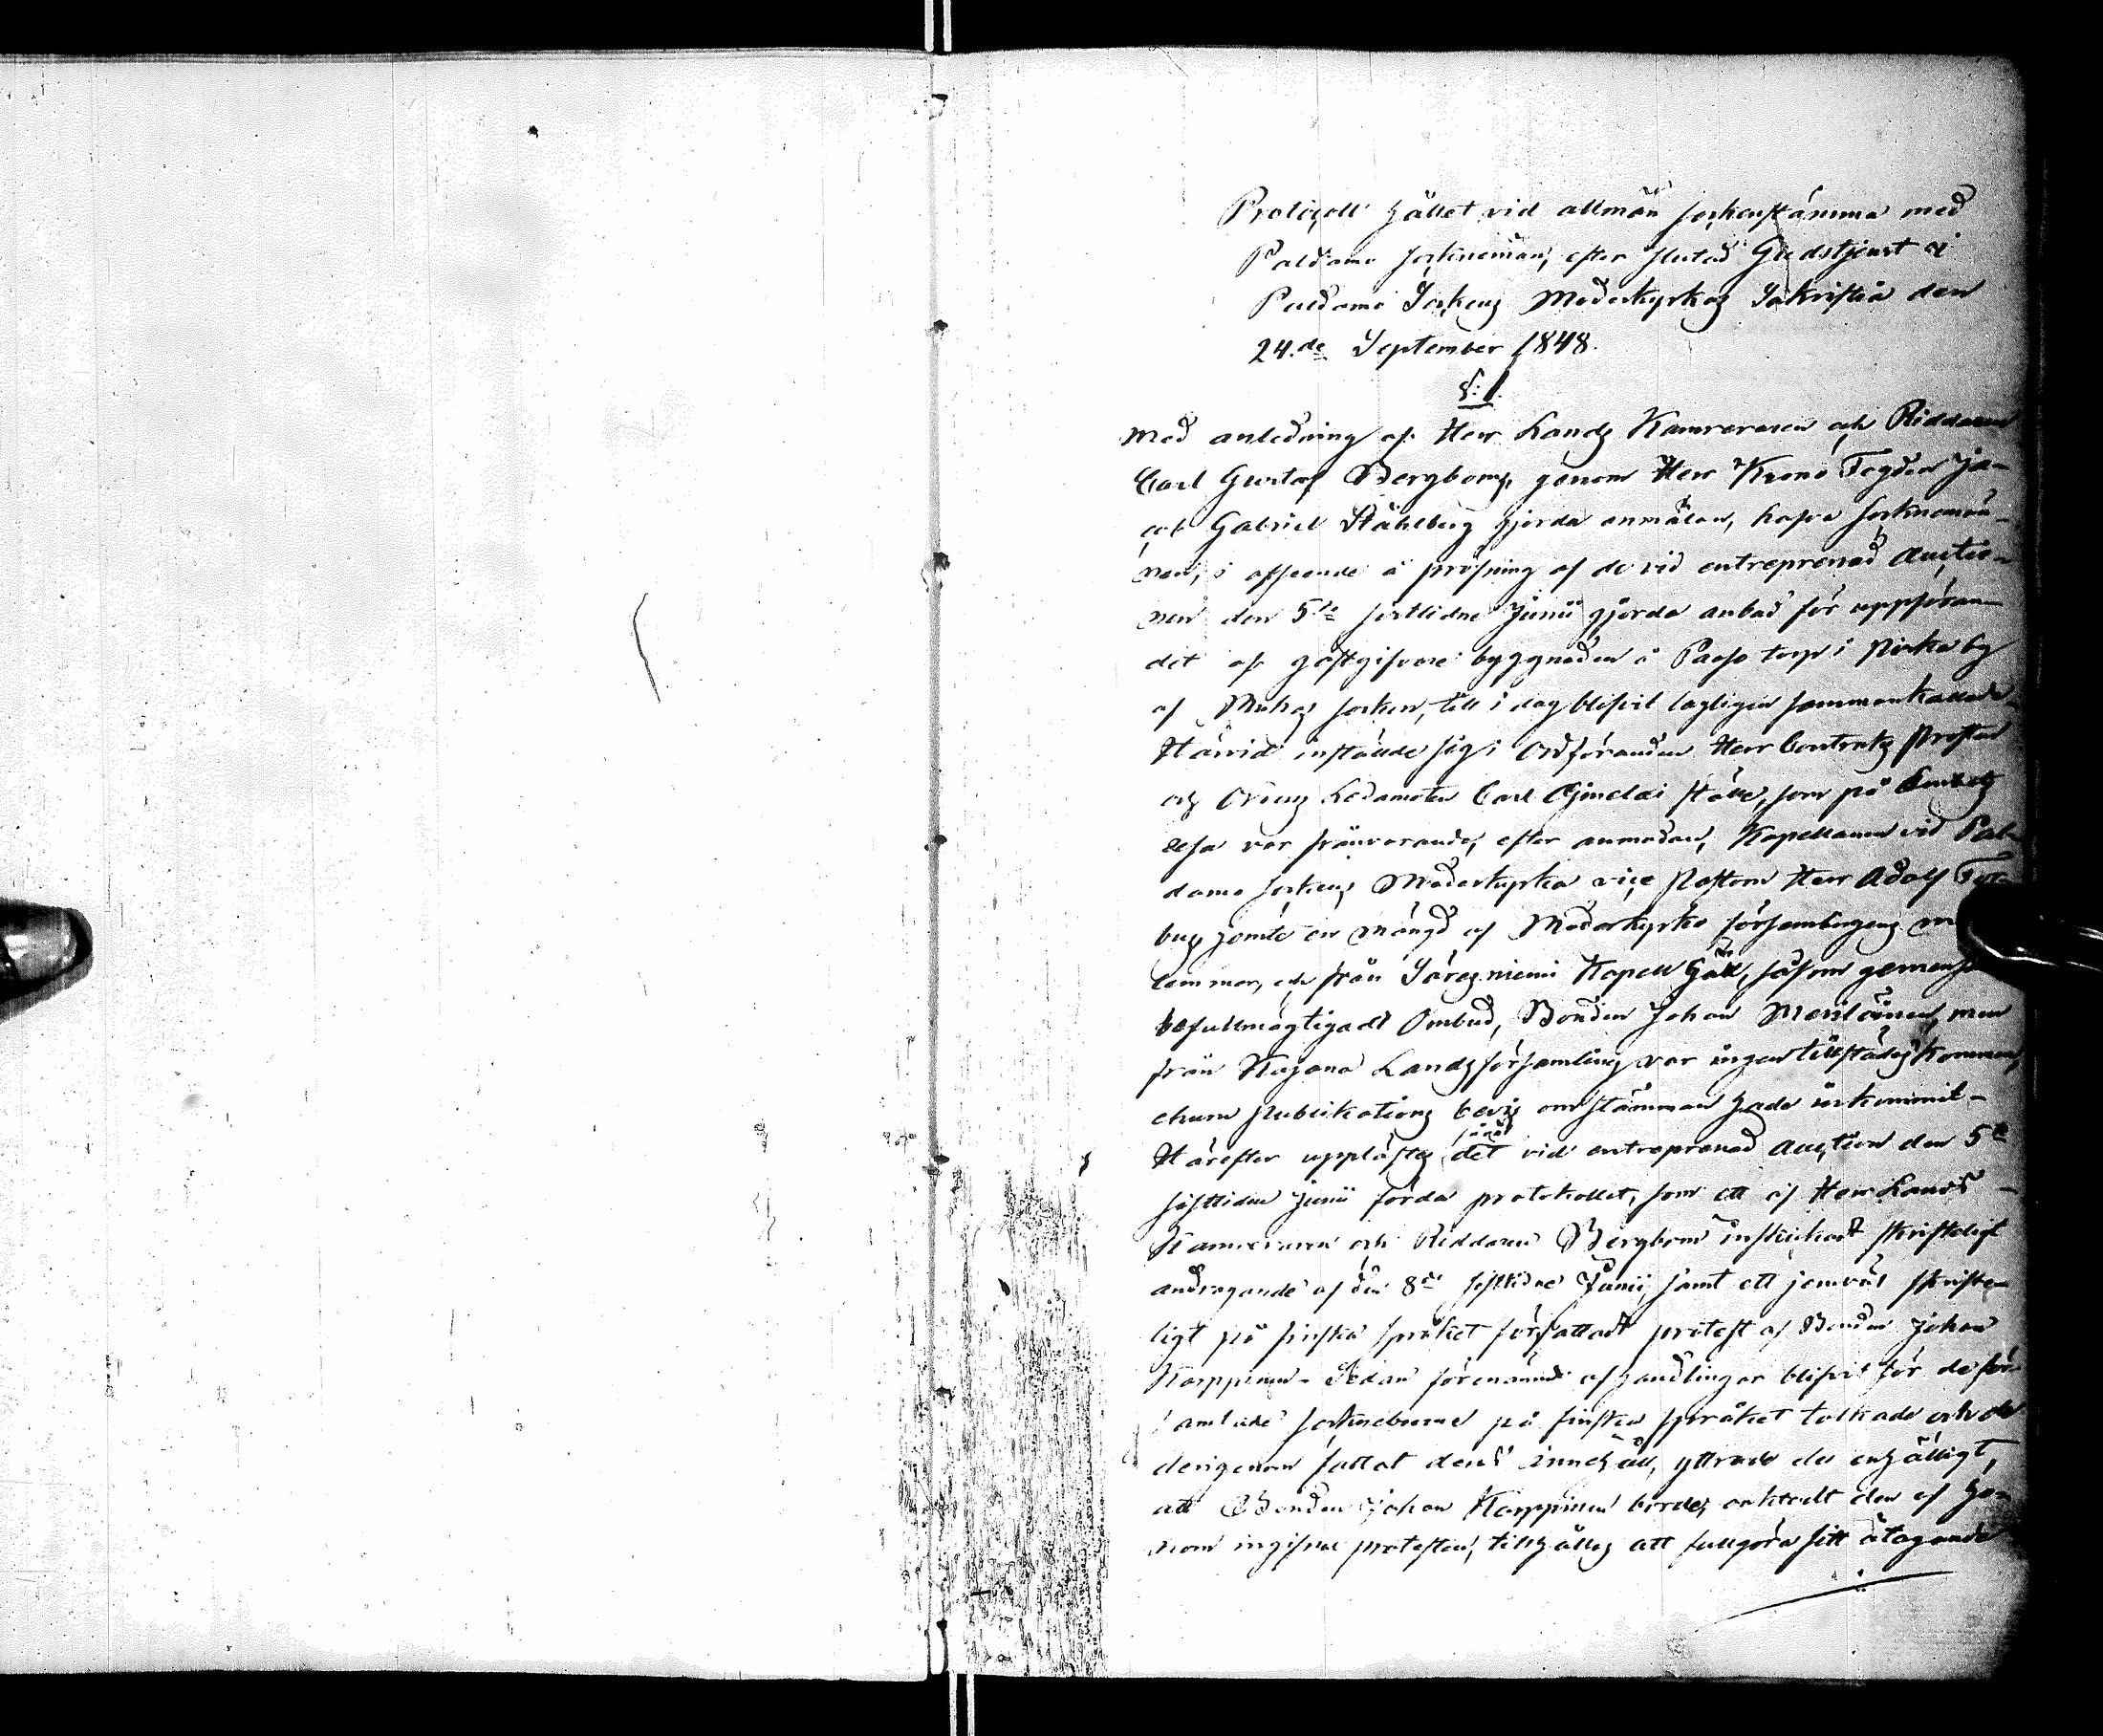 Protocoll hållet vid allmän Sockenstämma med
Paldamo Sockneman, efter slutad Gudstjenst i
Paldamo Sockens Moderkyrkas Sakristia den
24.de September 1848.
§: 1.
Med anledning af Herr Lands Kamreraren och Riddaren
Carl Gustaf Bergboms, genom Herr Krono Fogden Ja-
cob Gabriel Ståhlberg gjorda anmälan, hafva Socknemän-
nen, i afseende å pröfning af de vid entreprenad Auctio-
nen den 5te sistlidne Junii gjorda anbud för uppföran-
det af gästgifvare byggnaden å torp i by
af Socken, till i dag blifvit lagligen sammankallade.
Härvid instälde sig i Ordföranden Herr Contrakts Prosten
och Ledamoten Carl ställe, som på
resa var frånvarande, efter anmodan, Kapellanen vid Pal-
damo Sockens Moderkyrka vice Pastorn Herr Adolf
jemte en mängd af Moderkyrko församlingens
lemmar, och från Säresniemi Kapell Gäll, såsom
befullmägtigadt Ombud, Bonden Johan men
från Kajana Landsförsamling var ingen tillstädes kommen,
ehuru publikations bevis om stämman hade inkommit -
Härefter upplästes såväl det vid entreprenad Auction den 5te
sistlidne Junii förda protokollet, som ett af Herr Lands -
Kamreraren och Riddaren Bergbom inskickadt skrifteligt
andragande af den 8de sistlidne Junii, samt ett jemväl skrifte-
ligt på finska språket författadt protest af Bonden Johan
Karppinen - Sedan förenämnde afhandlingar blifvit för de för-
samlade Sockneboerne på finska språket tolkade och de
derigenom fattat deras innehåll, yttrade de enhälligt,
att Bonden Johan Karppinen borde, oaktadt den af ho-
nom ingifne protesten, tillhållas att fullgöra sitt åtagande